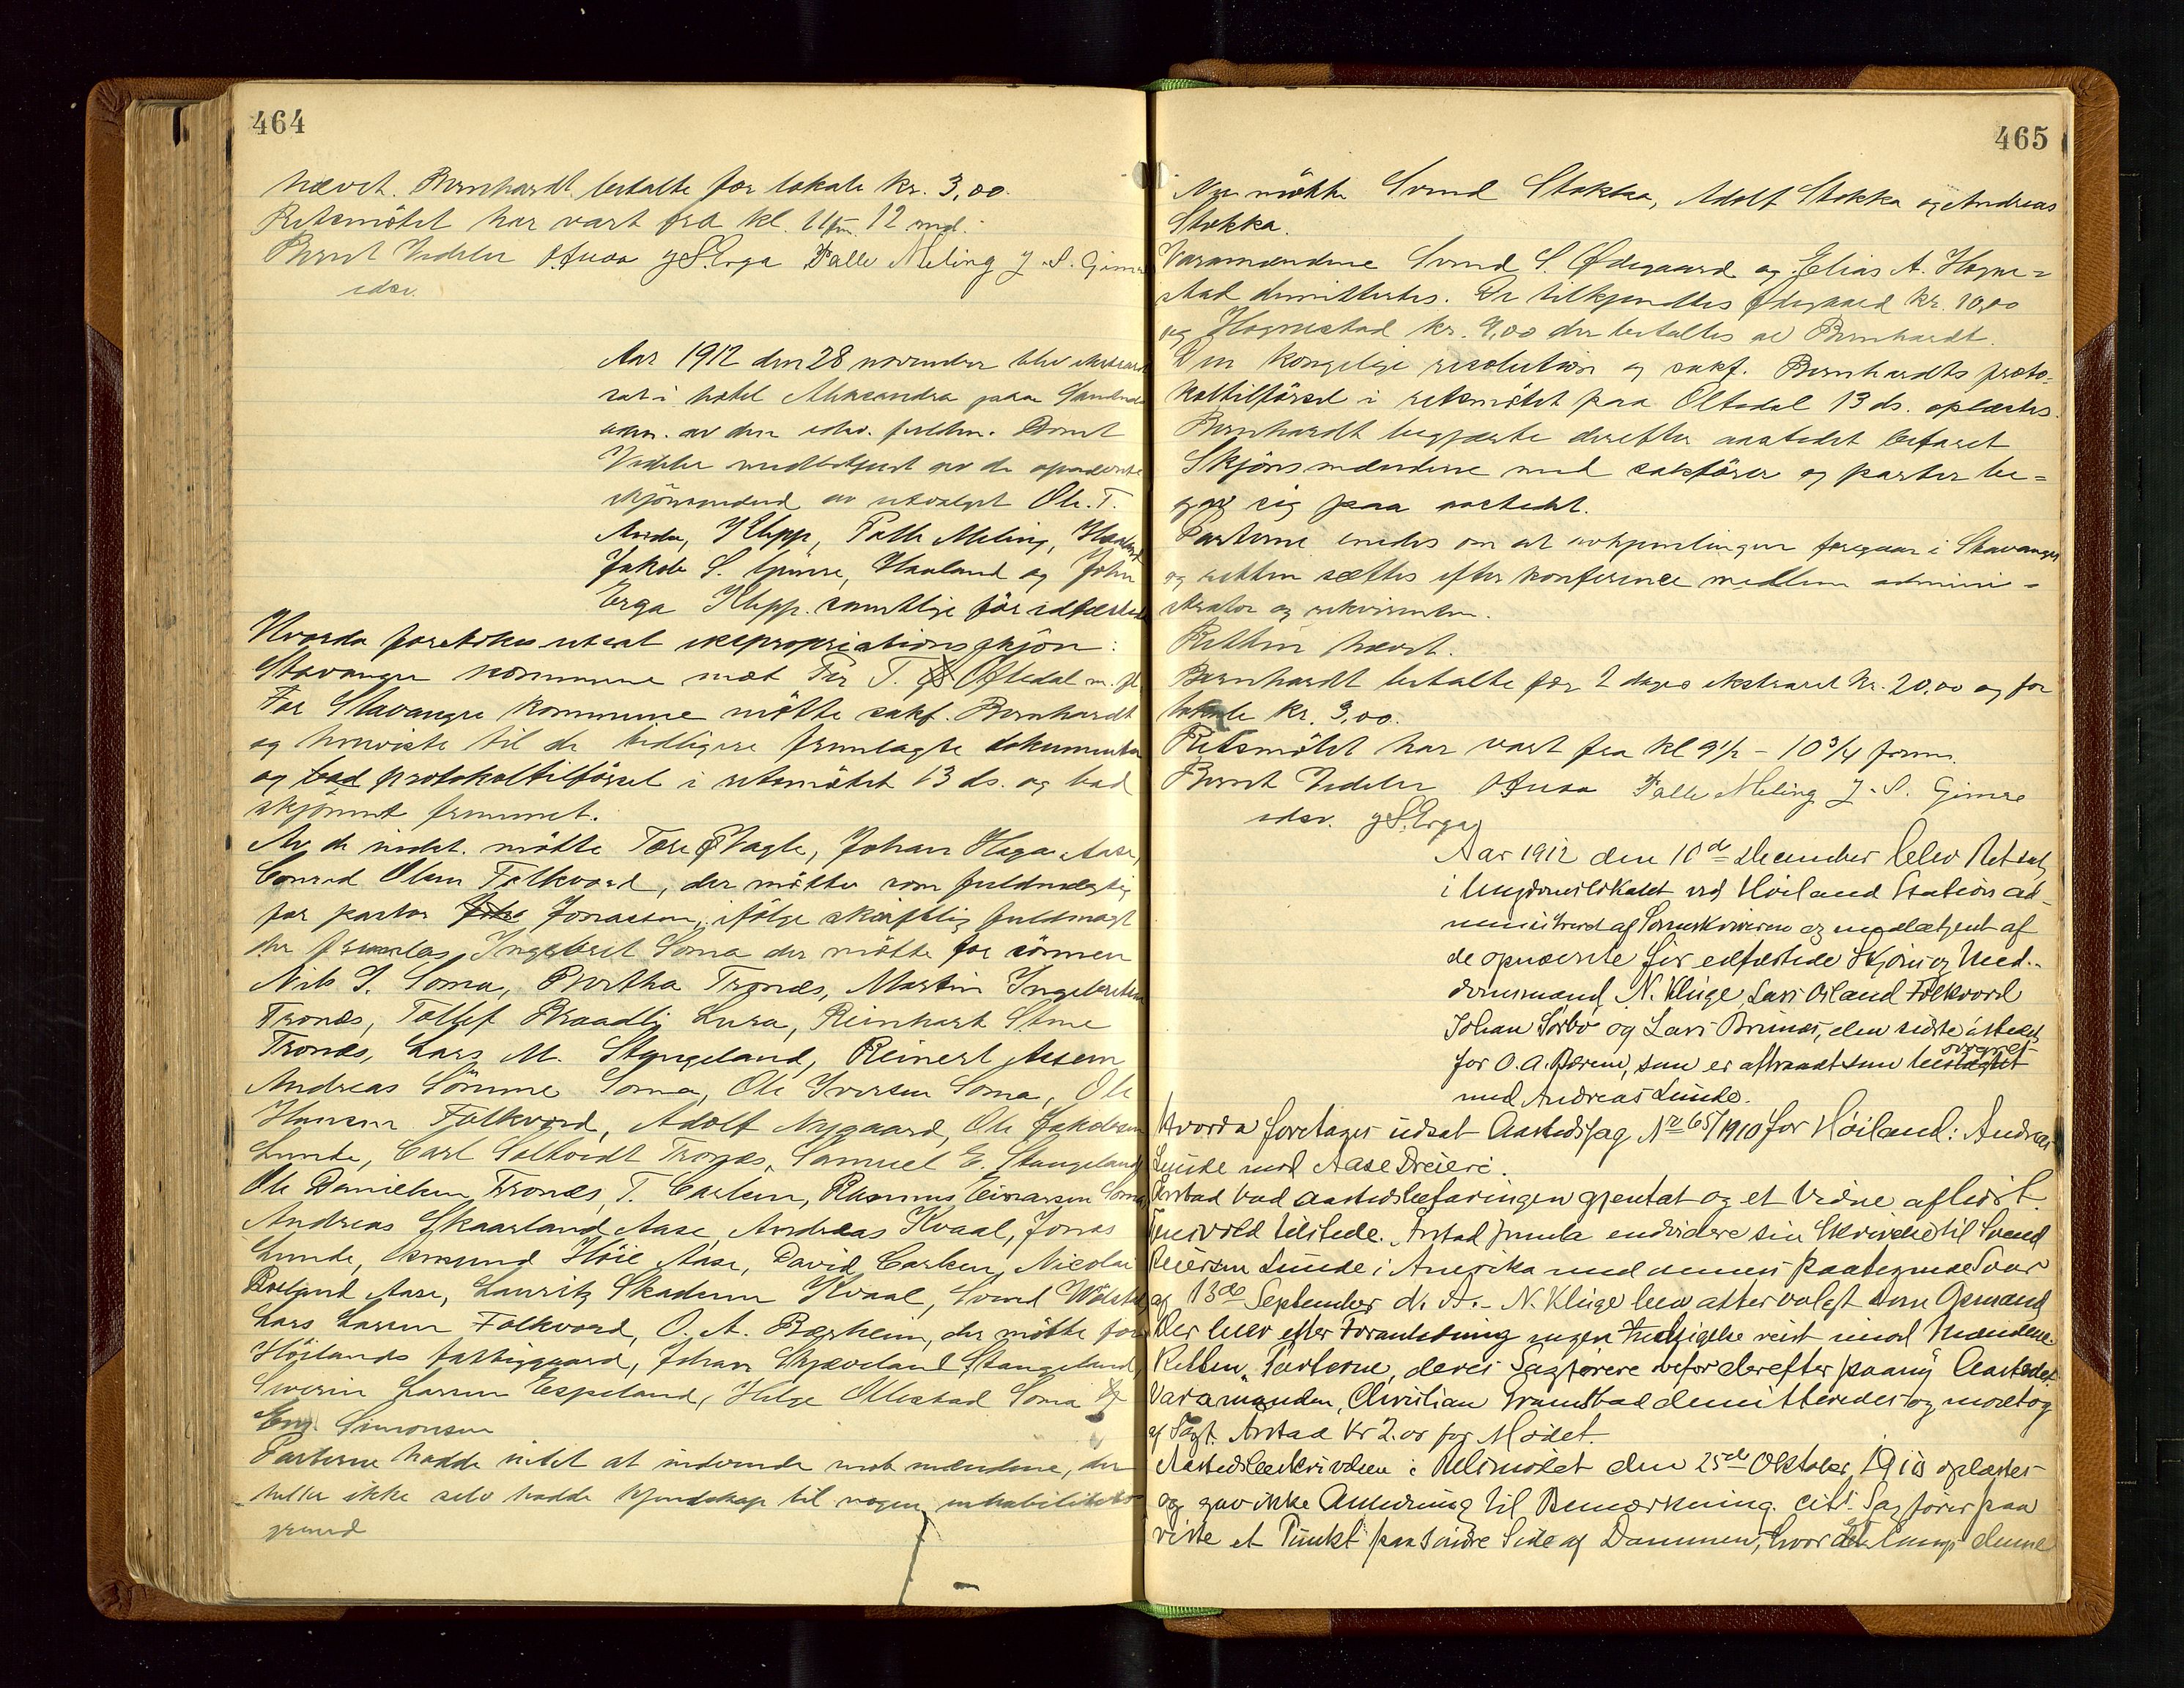 464
hævet. Bernhardt betalte for lokale kr. 3,00.
Retsmötet har vart fra kl. 11 fm. 12 md.
Bernt Videler OTuaa J S. Erga Palle Meling J. S. Gimre
edsv.
Aar 1912 den 28 november blev ekstraret
sat i hotel Alexandra paa Sandnes
adm. av den edsv. fuldm. Bernt
Videler medbetjent av de opnævnte
skjönsmænd av utvalget Ole. T.
Anda, Klepp, Palle Meling, Haaland
Jakob S. Gimre, Haaland og John
Erga Klepp. samtlige för edfæstede
Hvorda foretokes utsat ekspropriationsskjön:
Stavanger kommune mot Per T. Oftedal m. fl.
For Stavanger kommune mötte sakf. Bernhardt
og henviste til de tidligere fremlagte dokumenter
og bad protokoltilförsel i retsmötet 13 ds. og bad
skjönnet fremmet.
Av de indst. mötte Tore Vagle, Johan Haga Aase,
Conrad Olsen Folkvord, der mötte som fuldmægtig
for pastor Jonassen, ifölge skriftlig fuldmagt
der fremlaes, Ingebret Soma der mötte for sönnen
Nils I. Soma, Bertha Tronæs, Martin Ingebretsen
Tronæs, Tollef Braadli Lura, Reinhart Stene
Tronæs, Lars M. Stangeland, Reinert Assem
Andreas Sömme Soma, Ole Iversen Soma, Ole
Hansen Folkvord, Adolf Nygaard, Ole Jakobsen
Lunde, Carl Soltvedt Tronæs, Samuel E. Stangeland,
Ole Danielsen Tronæs, T. Carlsen, Rasmus Einarsen Soma,
Andreas Skaarland Aase, Andreas Kvaal, Jonas
Lunde, Asmund Höie Aase, David Carlsen, Nicolai
Roland Aase, Lauritz Skadsem Kvaal, Svend
Lars Larsen Folkvord, O. A. Bærheim, der mötte for
Höilands fattiggaard, Johan Skjæveland Stangeland,
Severin Larsen Espeland, Helge Ollestad Soma &
Eng. Simonsen
Parterne hadde intet at indvende mot mændene, der
heller ikke selv hadde kjendskap til nogen inhabilitets
grund
465
Nu mötte Svend Stokka, Adolf Stokka og Andreas
Stokka.
Varamændene Svend S. Ødegaard og Elias A. Hogne=
stad dimitteres. Der tilkjendtes Ødegaard kr. 10,00
og Hognestad kr. 9,00 der betaltes av Bernhardt.
Den kongelige resolution og sakf. Bernhardts proto-
koltilförsel i retsmötet paa Oltedal 13 ds. oplæstes.
Bernhardt begjærte derefter aastedet befaret
Skjönsmændene med sakförer og parter be=
gav sig paa aastedet.
Parterne enedes om at avhjemlingen foregaar i Stavanger
og retten sættes efter konference mellem admini-
strator og rekvirenten.
Retten hævet.
Bernhardt betalte for 2 dages ekstraret kr. 20,00 og for
lokale kr. 3,00.
Retsmötet har vart fra kl 9½ - 10¾ form.
Bernt Videler OTuaa Palle Meling J. S. Gimre
edsv. J S. Erga
Aar 1912 den 10de December blev Ret sat
i Ungdomslokalet ved Höiland Station ad-
ministreret af Sorenskriveren og medbetjent af
de opnævnte för edfæstede Skjöns og Med-
domsmænd N. Kluge, Lars Osland Folkvord
Johan Sörbö og Lars Brunes, den sidste istedet
for O. A. Bærem, som er aftraadt som besvogret
med Andreas Lunde.
Hvorda foretages udsat Aastedssag No 65/1910 for Höiland: Andreas
Lunde mod Aase Dreieri.
Arstad bad aastedsbefaringen gjentat og et Vidne afhört.
Tengvold tilstede. Arstad fremla endvidere sin Skrivelse til Svend
Reiersen Lunde i Amerika med dennes paategnede Svar
af 13de September d. A. - N. Kluge blev atter valgt som Opmand
Der blev efter Foranledning ingen Indsigelse reist imod Mændene.
Retten, Parterne, deres Sagförere befor derefter paany Aastedet.
Varamanden, Christian Tramsbad demitteredes og modtog
af Sagf. Arstad Kr 2.00 for Mödet.
Aastedsbeskrivelsen i Retsmödet den 25de Oktober 1910 oplæstes
og gav ikke Anledning til Bemærkning. Cits. Sagförer paa
viste et Punkt paa söndre Side af Dammen, hvor det langs denne